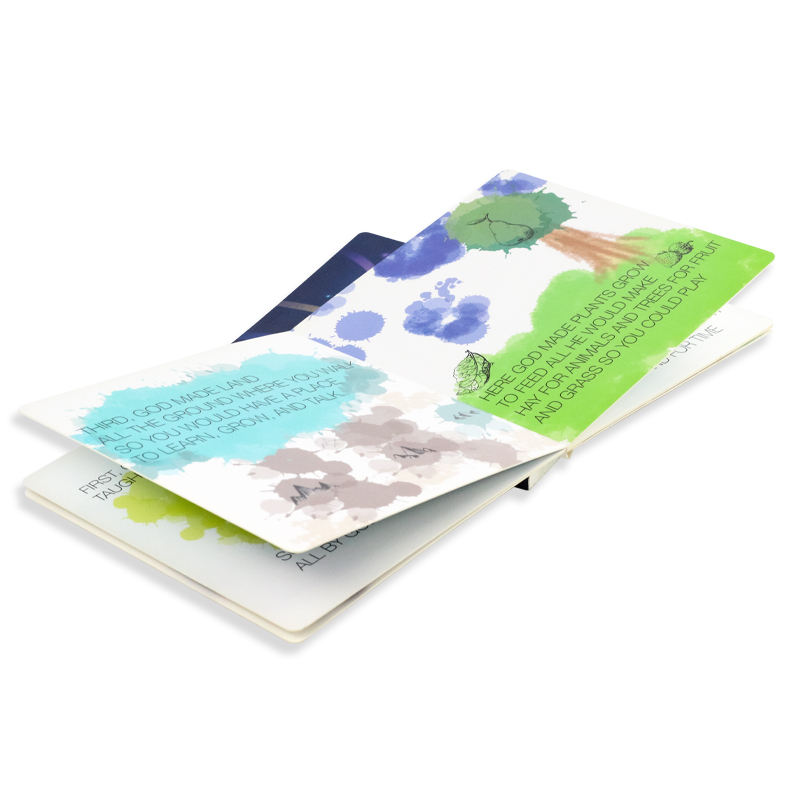 THIRD, GOD MADE LAND
ALL THE GROUND WHERE YOU WALK
SO YOU WOULD HAVE A PLACE
TO LEARN, GROW, AND TALK
HERE GOD MADE PLANTS GROW
TO FEED ALL HE WOULD MAKE
HAY FOR ANIMALS AND TREES FOR FRUIT
AND GRASS SO YOU COULD PLAY
FIRST,
ALL BY
FOR TIME